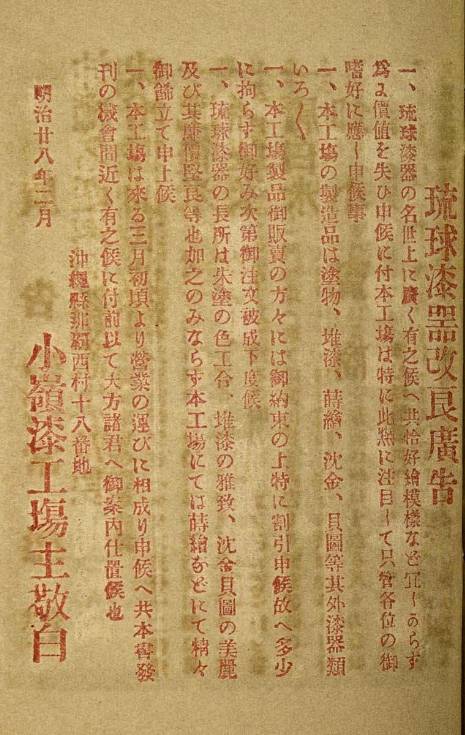 琉球漆器改良廣告
一、琉球漆器の名世上に廣く有之候へ共恰好繪模樣など宜しからす
爲よ價値を失ひ申候に付本工塲は特に此點に注目して只管各位の御
嗜好に應し申候事
一、本工塲の製造品は塗物、堆漆、蒔繪、沈金、貝圖等其外漆器類
いろ〱
一、本工塲製品御販賣の方々には御約束の上特に割引申候故へ多少
に拘らす御好み次第御注文被成下度候
一、琉球漆器の長所は朱塗の色工合、堆漆の雅致、沈金貝圖の美麗
及び其廉價堅良等也加之のみならす本工塲にては蒔繪などにて精々
御飾立て申上候
一、本工塲は來る三月初頃より營業の運びに相成り申候へ共本書發
刊の機會間近く有之候に付前以て大方諸君へ御案内仕置候也
明治廿八年二月
沖繩縣那覇西村十八番地
小嶺漆工塲主敬白